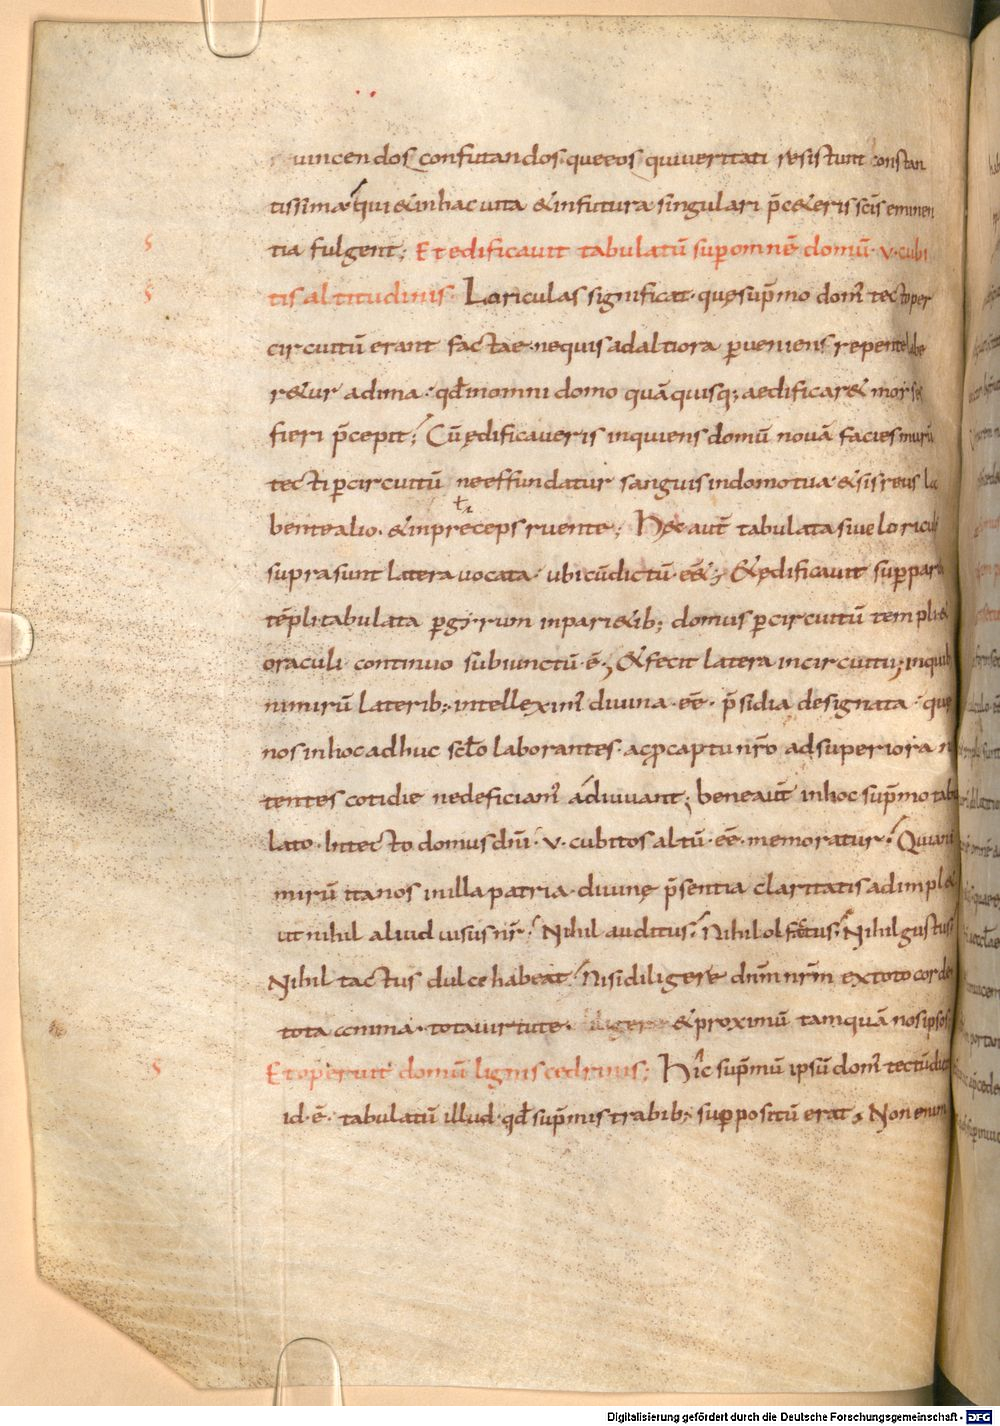 uincendos confutandosque eos qui ueritati resistunt constan
tissima qui & in hac uita & in futura singulari p̄ c&eris sc̄is eminen
tia fulgent; Et edificauit tabulatū sup omnē domū · v · cubi
tis altitudinis · Loriculas significat · quę sup̄mo dom' tecto per
circuitū erant factae · ne quis ad altiora perueniens repente labe
r&ur ad ima · qđ in omni domo quā quisq; aedificar& morses
fieri p̄cepit; Cū ędificaueris inquiens domū nouā facies murū
tecti p circuitū ne effundatur sanguis in domo tua & sis reus la
bente alio · & in preceps ruente; Hęc aut̄ tabulata siue loricule
supra sunt latera uocata · ubi cū dictū · eē&; & ędificauit sup par
tēpli tabulata p gyrum in pari&ib; domus p circuitū templi &
oraculi continuo subiunctū · ē · & fecit latera in circuitu; in quib
nimirū laterib; intellexim' diuina · eē · p̄sidia designata · que
nos in hoc adhuc scło laborantes · ac p captu nr̄o ad superiora n
tentes cotidie ne deficiam' adiuuant; bene aut̄ in hoc sup̄mo tabu
lato · In tecto domus dn̄i · v · cubitos altū · eē · memoratur · Quia ni
mirū ita nos in illa patria · diuinę p̄sentia claritatis adimpl&
ut nihil aliud uisus nr̄ · Nihil auditus · Nihil olfactus · Nihil gustus
Nihil tactus dulce habeat · Nisi diligere dn̄m nr̄m ex toto corde
tota anima · tota uirtute · diligere & proximū tamquā nos ipsos
Et operuit domū lignis cedrinis; Hic sup̄mū ipsū dom' tectū dicit
id · ē · tabulatū illud · qđ sup̄mis trabib; suppositū erat · Non enim
Digitalisierung gefördert durch die Deutsche Forschungsgemeinschaft - DFG